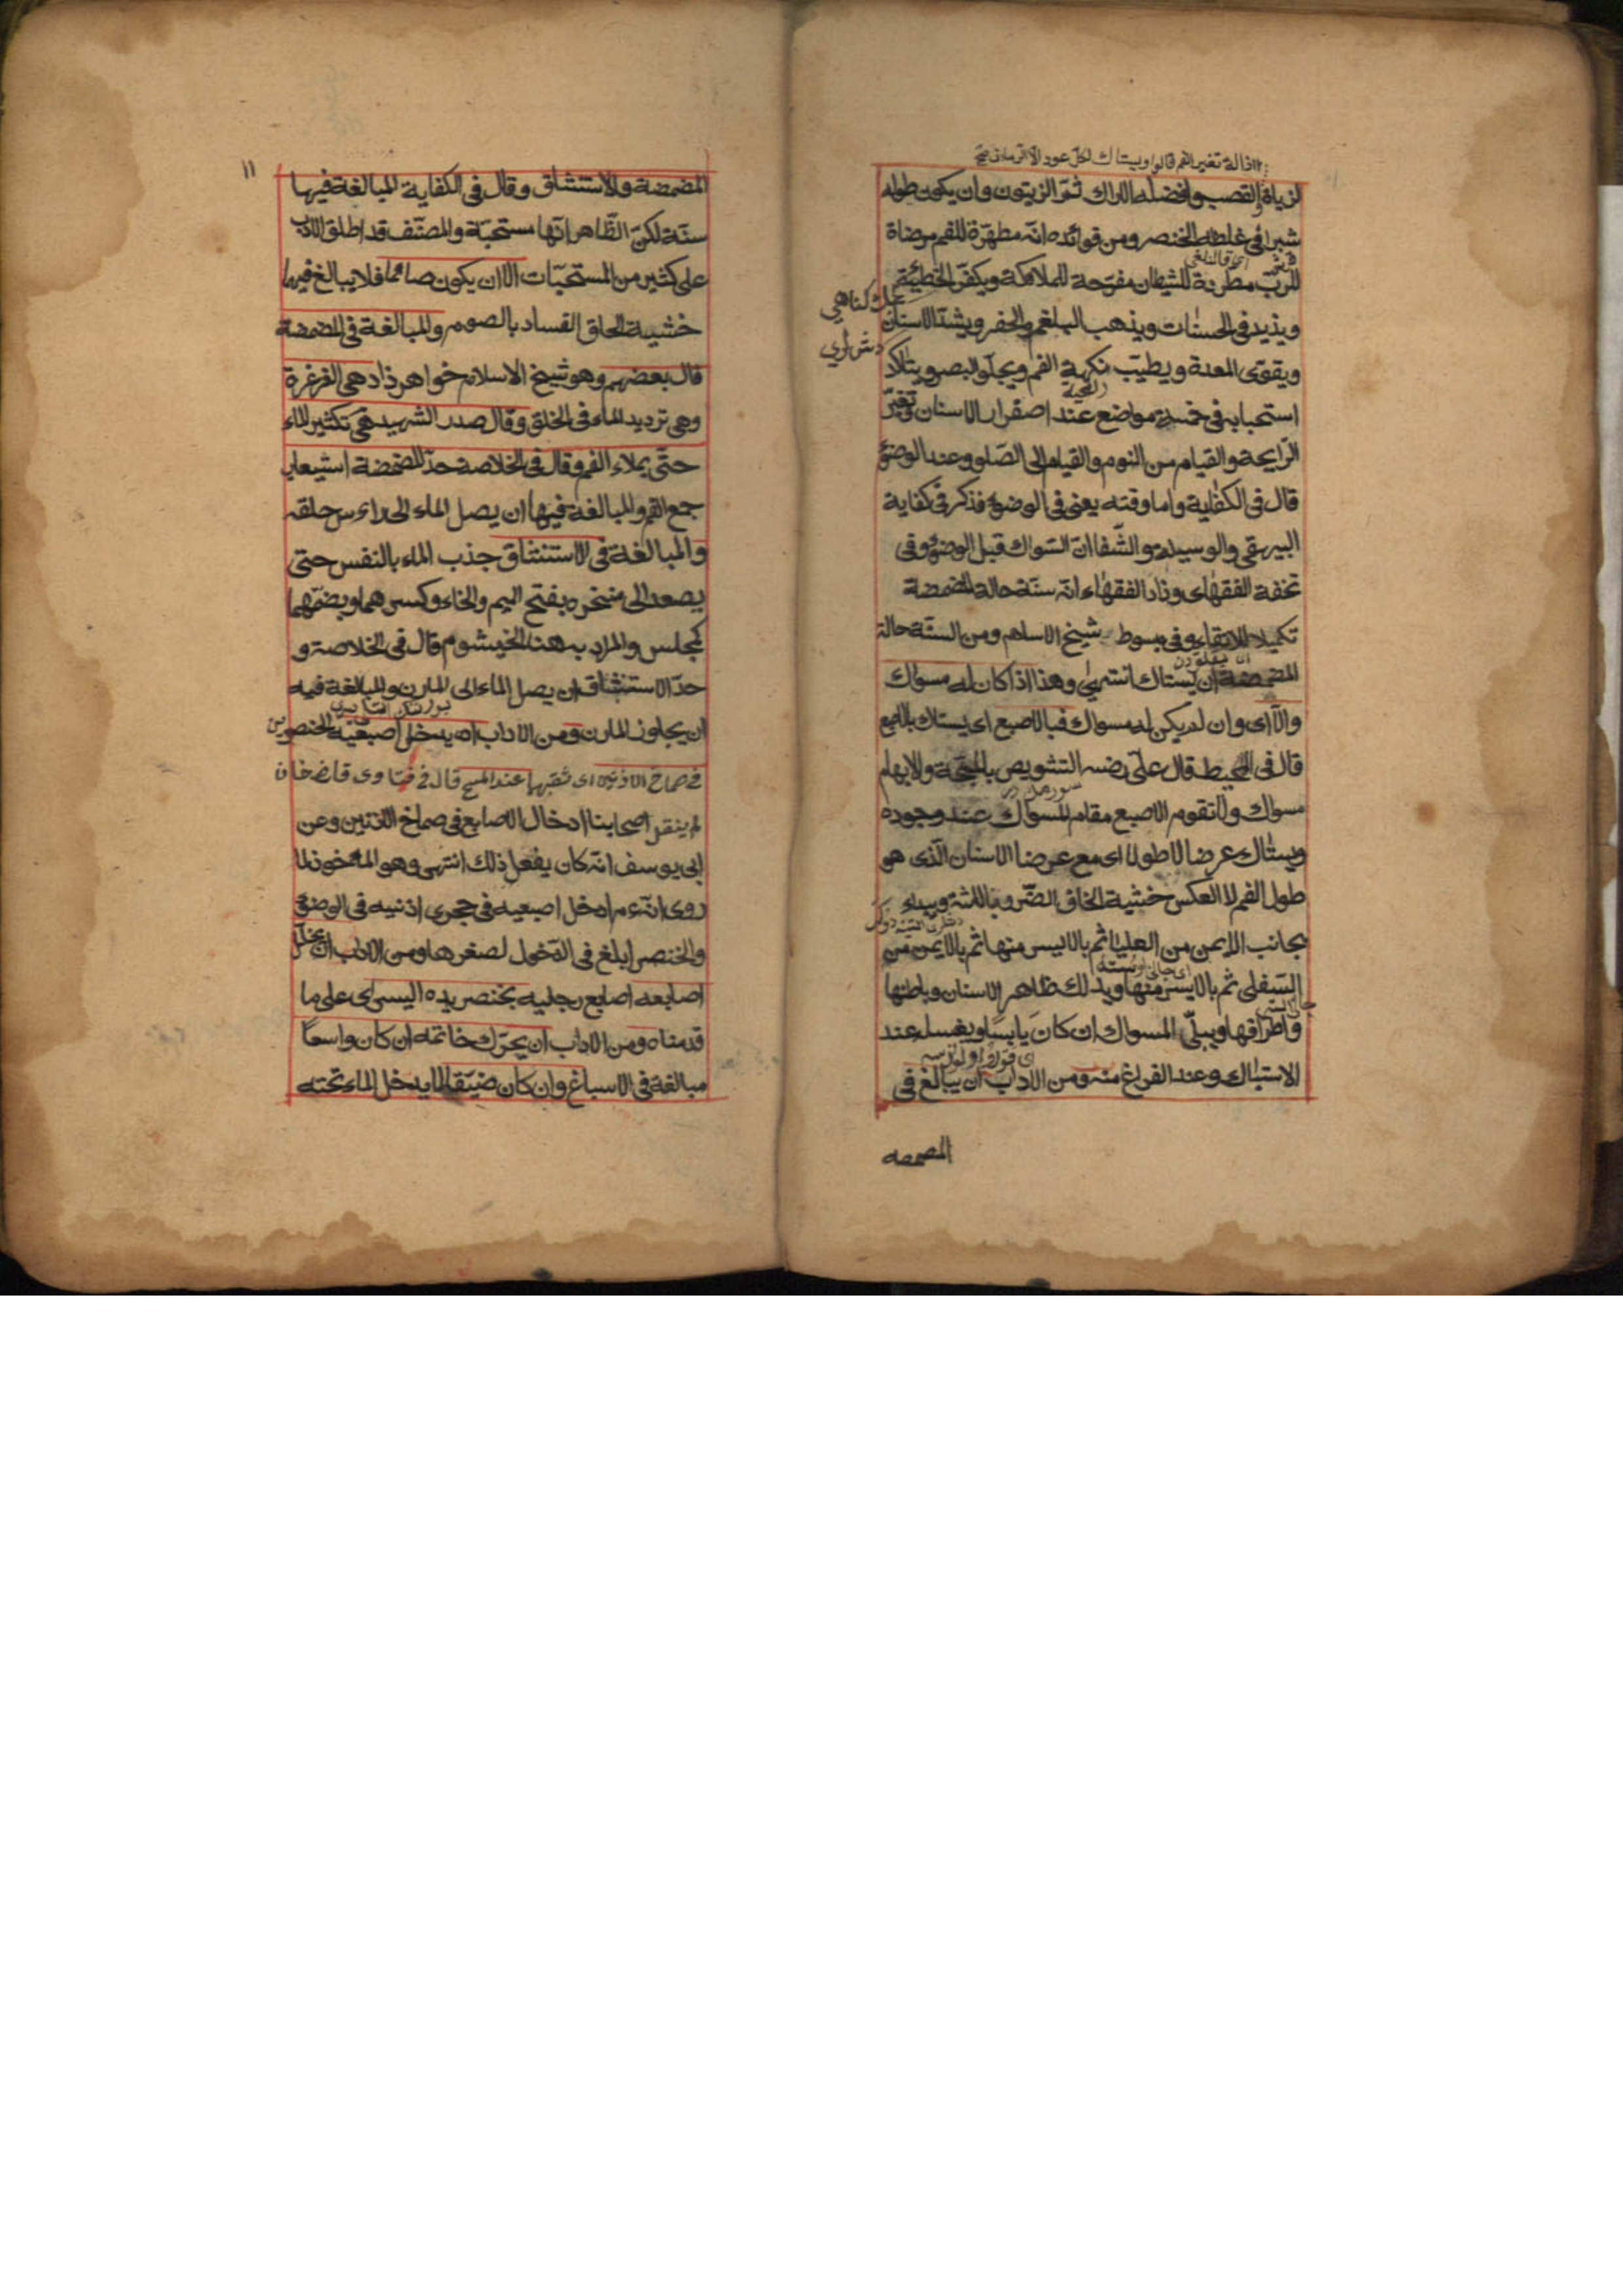 ازالة تغير الفم قالوا ويستاك لكل عود الا الرمان صح
لزيادة والقصب وافضله الاراك ثمّ الزيتون وان يكون طوله
شبرا فى غلظه الخنصر ومن فوائده انّه مطهّرة للفم مرضاة
للربّ مطردة للشيطان مفرّحة للملائكة ويكفّر الخطيئة
ويزيد فى الحسنات ويذهب البلغم والحفر ويشدّ الاسنان
ويقوّى المعدة ويطيّب نكهة الفم ويجلو البصر ويتاكد
استحبابه فى خمسة مواضع عند اصفرار الاسنان وتغيّر
الرّايحة والقيام من النوم والقيام الى الصّلوة وعند الوضوء
قال فى الكفاية واما وقته يعنى فى الوضوء فذكر فى كفاية
البيهقى والوسيلة والشّفا انّ السّواك قبل الوضوء وفى
تحفة الفقهاء وزاد الفقهاء انّه سنّة حالة المضمضة
تكميلا للانقاء وفى مبسوط شيخ الاسلام ومن السنّة حالة
المضمضة ان يستاك انتهى وهذا اذا كان له مسواك
والّا اى وان لم يكن له مسواك فبالاصبع اى يستاك بالاصبع
قال فى المحيط قال علىّ رضه التشويص بالمسبّحة والابهام
سواك ولا تقوم الاصبع مقام المسواك عند وجوده
ويستاك عرضا لا طولا اى مع عرض الاسنان الّذى هو
طول الفم لا العكس خشية الحاق الضّرر باللثة ويبداء
بجانب الايمن من العليا ثم بالايسر منها ثم بالايمن من
السّفلى ثم بالايسر منها ويدلك ظاهر الاسنان وباطنها
واطرافها ويبلّ المسواك ان كان يابسا ويغسله عند
الاستياك وعند الفراغ منه ومن الاداب ان يبالغ فى
المضمضه
١١
المضمضة والاستنشاق وقال فى الكفاية المبالغة فيها
سنّة لكنّ الظّاهر انّها مستحبّة والمصنّف قد اطلق الادب
على كثير من المستحبّات الا ان يكون صائما فلا يبالغ فيها
خشية الحاق الفساد بالصوم والمبالغة فى المضمضة
قال بعضهم وهو شيخ الاسلام خواهر زاده هى الغرغرة
وهى ترديد الماء فى الحلق وقال صدر الشهيد هى تكثير الماء
حتّى يملاء الفم وقال فى الخلاصة حدّ المضمضة استيعاب
جمع الفم والمبالغة فيها ان يصل الماء الى راءس حلقه
والمبالغة فى الاستنشاق جذب الماء بالنفس حتى
يصعد الى منخره بفتح الميم والخاء وكسرهما وبضمّهما
كمجلس والمراد به هنا الخيشوم قال فى الخلاصة و
حدّ الاستنشاق ان يصل الماء الى المارن والمبالغة فيه
ان يجاوز المارن ومن الاداب ان يدخل اصبعيه الخنصرين
فى صماخ الاذنين اى ثقبها عند المسح قال فى فتاوى قاضخان
لم ينقل اصحابنا ادخال الاصابع فى صماخ الاذنين وعن
ابى يوسف انّه كان يفعل ذلك انتهى وهو الماخوذ لما
روى انّه ءم ادخل اصبعيه فى حجرى اذنيه فى الوضوء
والخنصر ابلغ فى الدّخول لصغرها ومن الاداب ان يخلّل
اصابعه اصابع رجليه بخنصر يده اليسرى على ما
قدمناه ومن الاداب ان يحرّك خاتمه ان كان واسعا
مبالغة فى الاسباغ وان كان ضيّقا لا يدخل الماء تحته